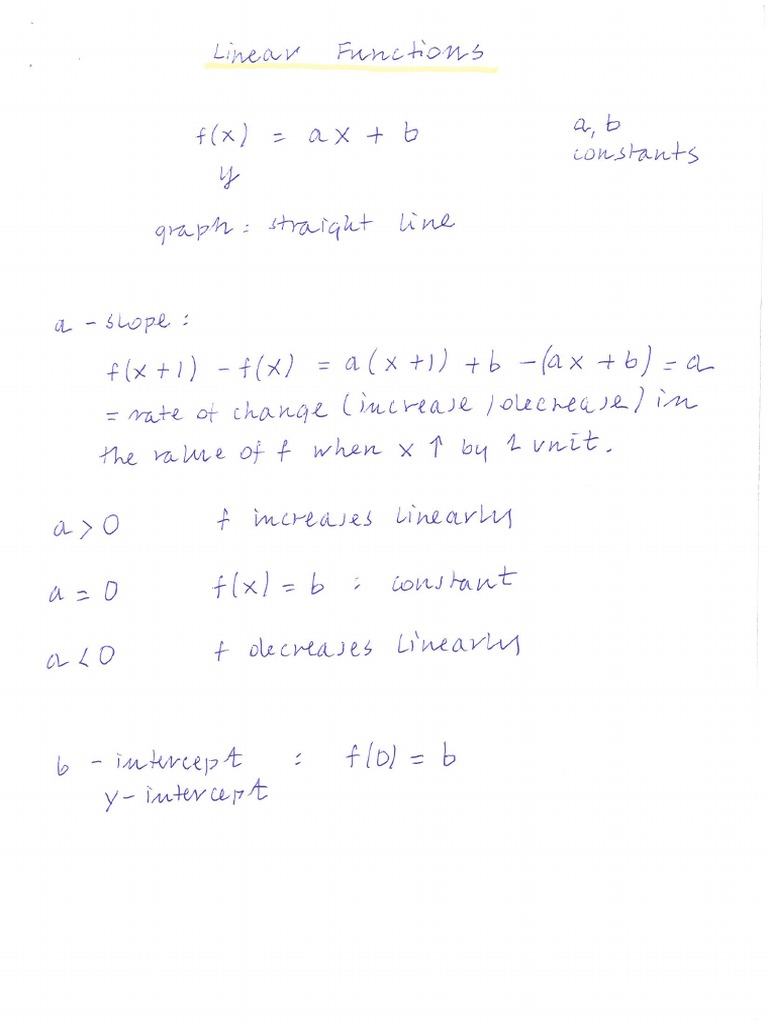 Linear Functions
f(x) = ax + b
a, b
constants
y
graph: straight line
a - slope:
f(x+1) - f(x) = a(x+1) + b - (ax + b) = a
= rate of change (increase / decrease) in
the value of f when x ↑ by 1 unit.
a > 0 f increases linearly
a = 0 f(x) = b : constant
a < 0 f decreases linearly
b - intercept : f(0) = b
y - intercept